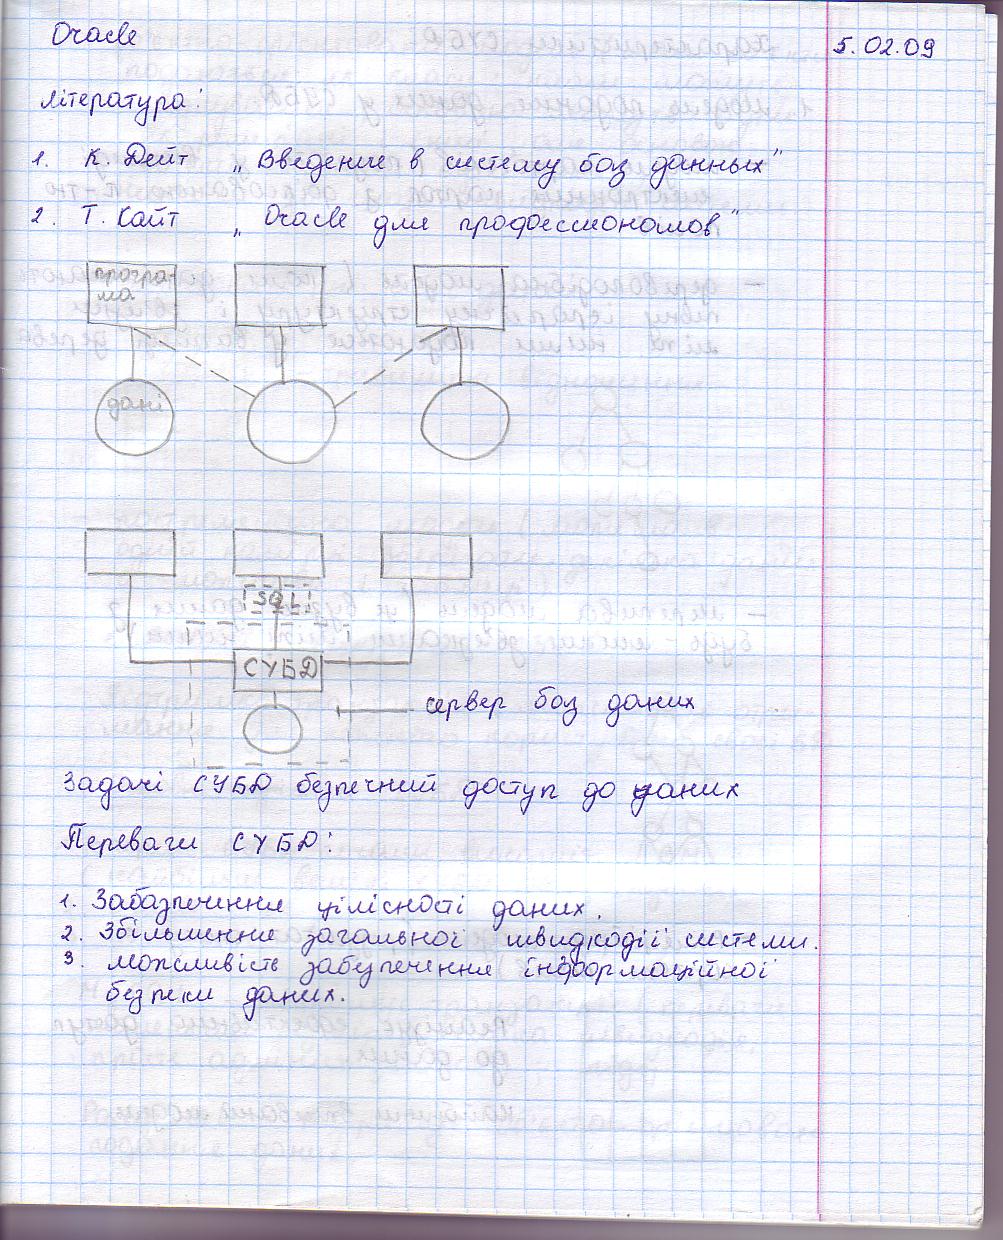 Oracle
5.02.09
література:
1. К. Дейт „Введение в систему баз данных"
2. Т. Кайт „Oracle для профессионалов"
програ-
ма
дані
SQL
СУБД
сервер баз даних
Задачі СУБД безпечний доступ до даних
Переваги СУБД:
1. Забазпечення цілісності даних.
2. Збільшення загальної швидкодії системи.
3. можливість забузпечення інформаційної
безпеки даних.